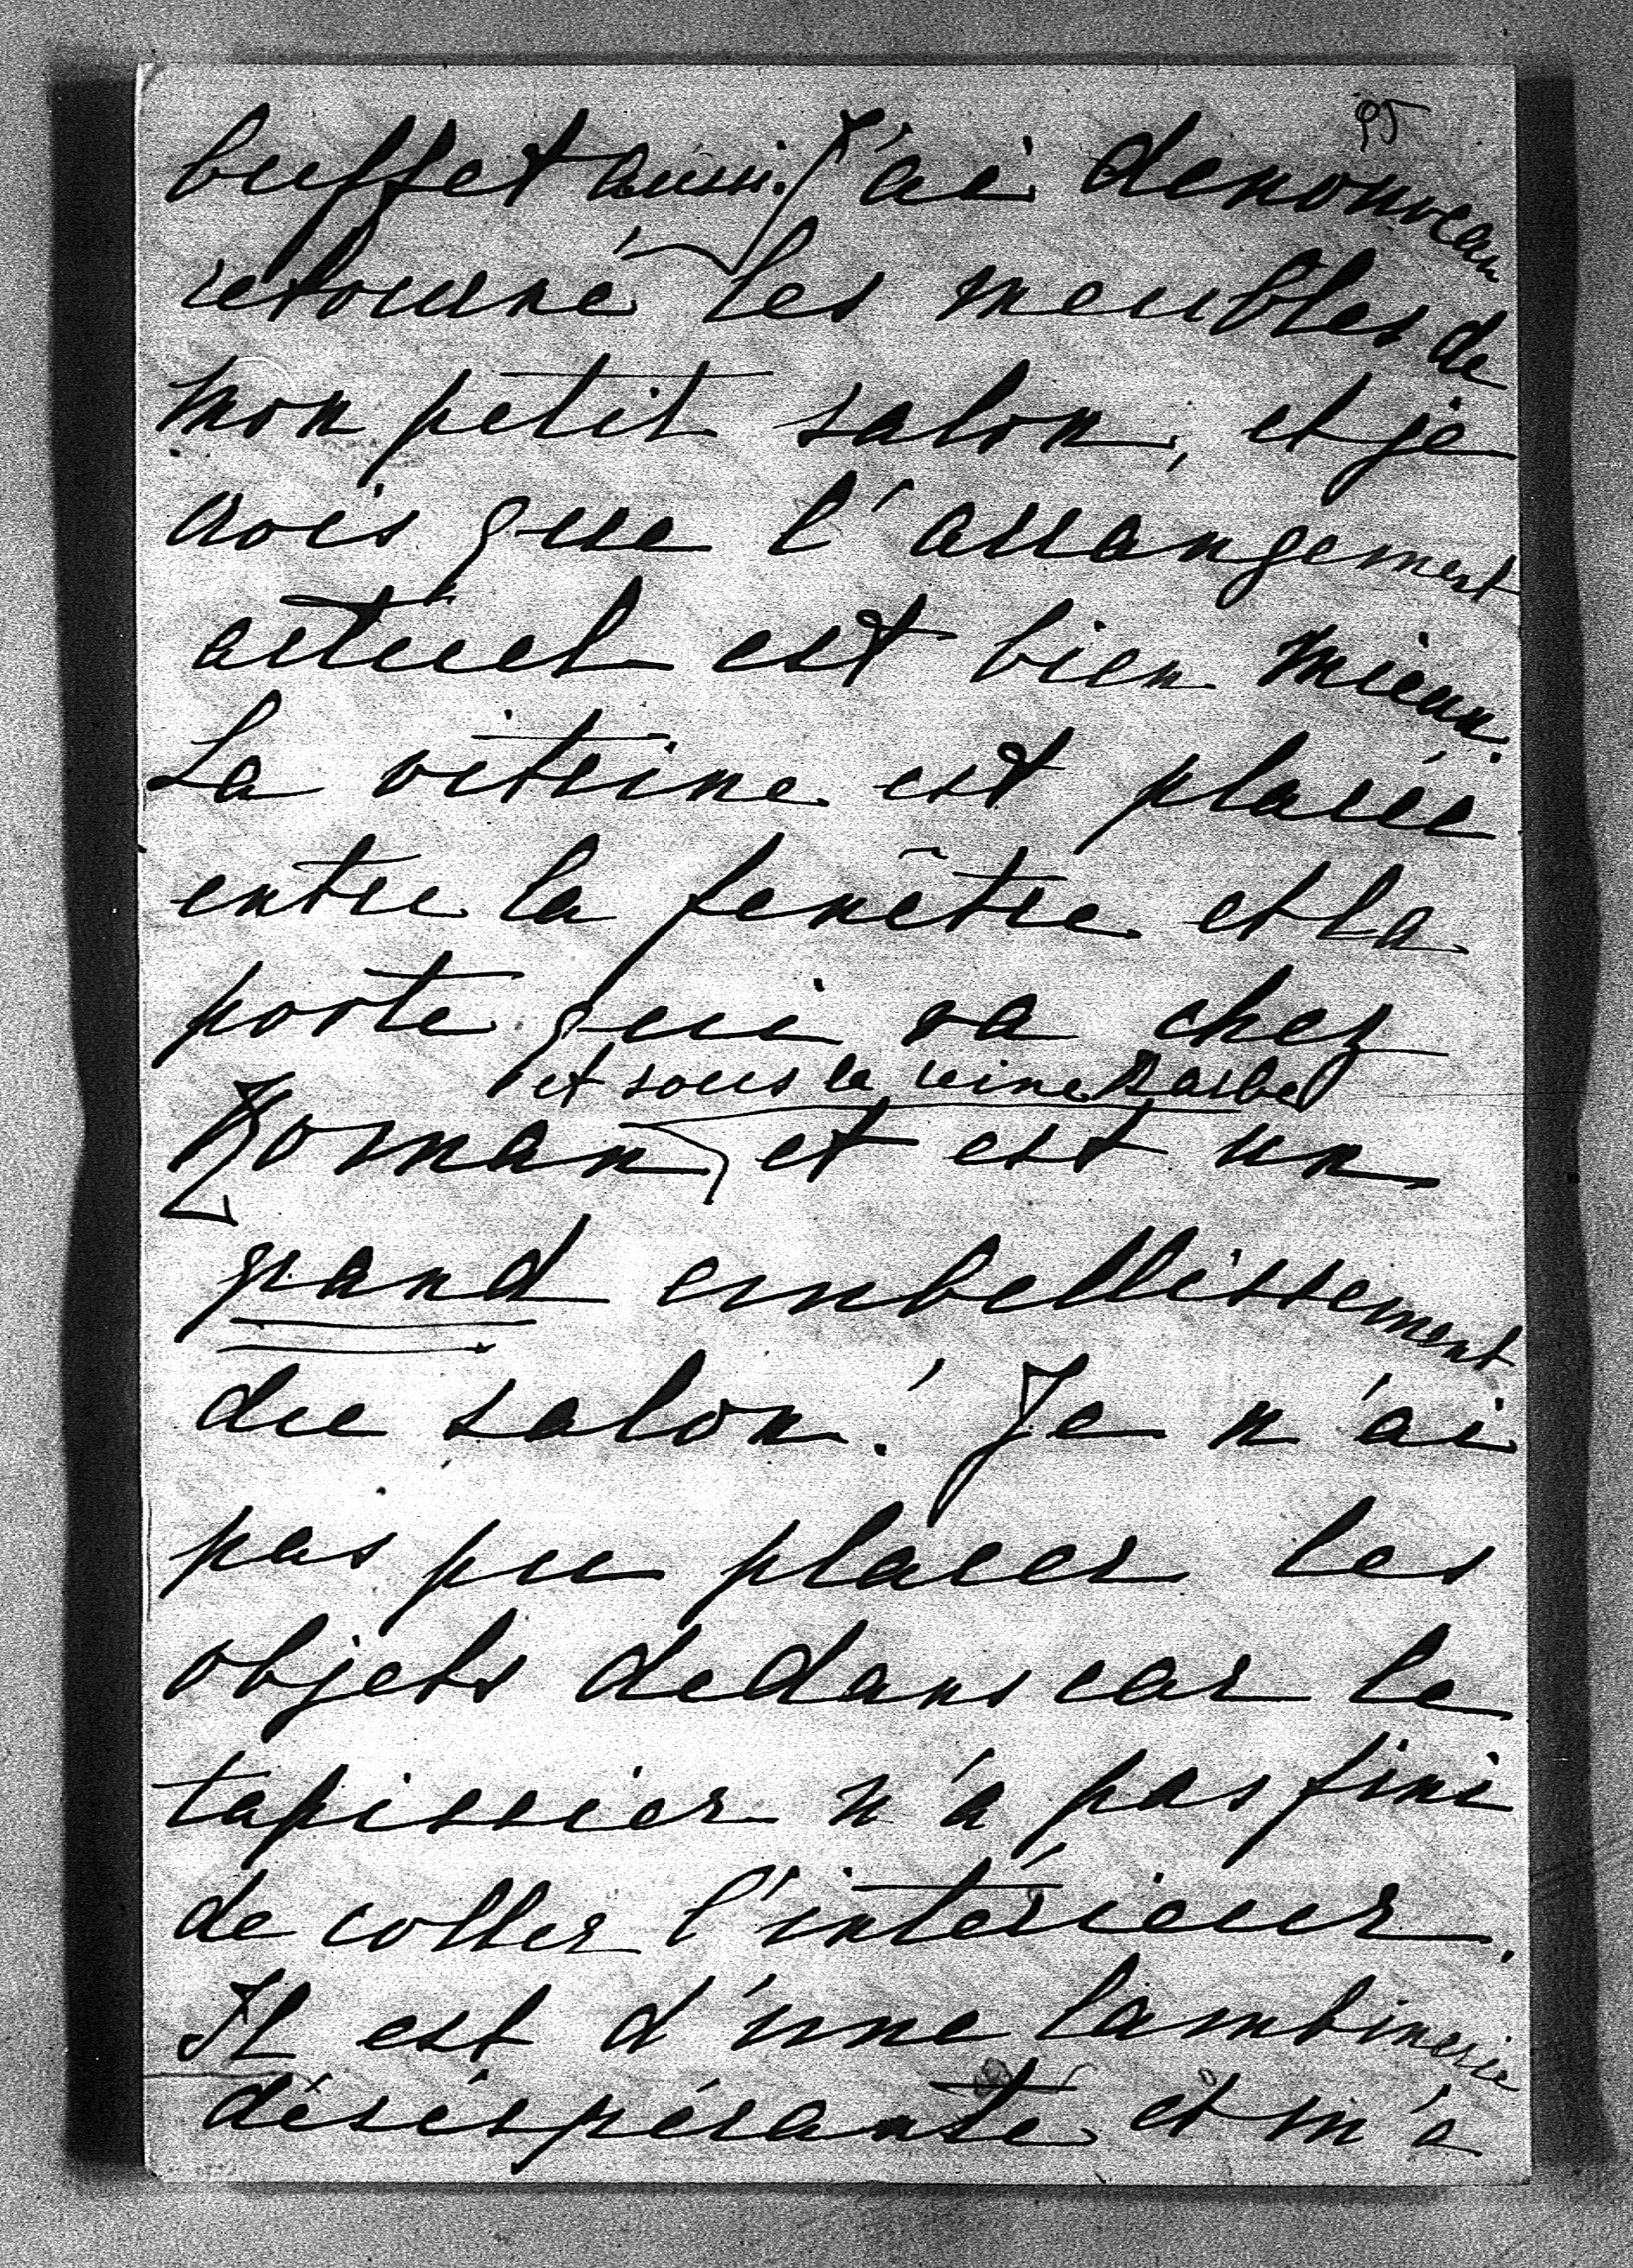 95
buffet aussi. J'ai de nouveau
retourné les meubles de
mon petit salon, et je
crois que l'arrangement
actuel est bien mieux.
La vitrine est placée
entre la fenêtre et la
porte qui va chez
et sous la reine Barbe
Roman, et est un
grand embellissement
du salon! Je n'ai
pas pu placer les
objets dedans car le
tapissier n'a pas fini
de coller l'intérieur.
Il est d'une lambinerie
désespérante et m'a